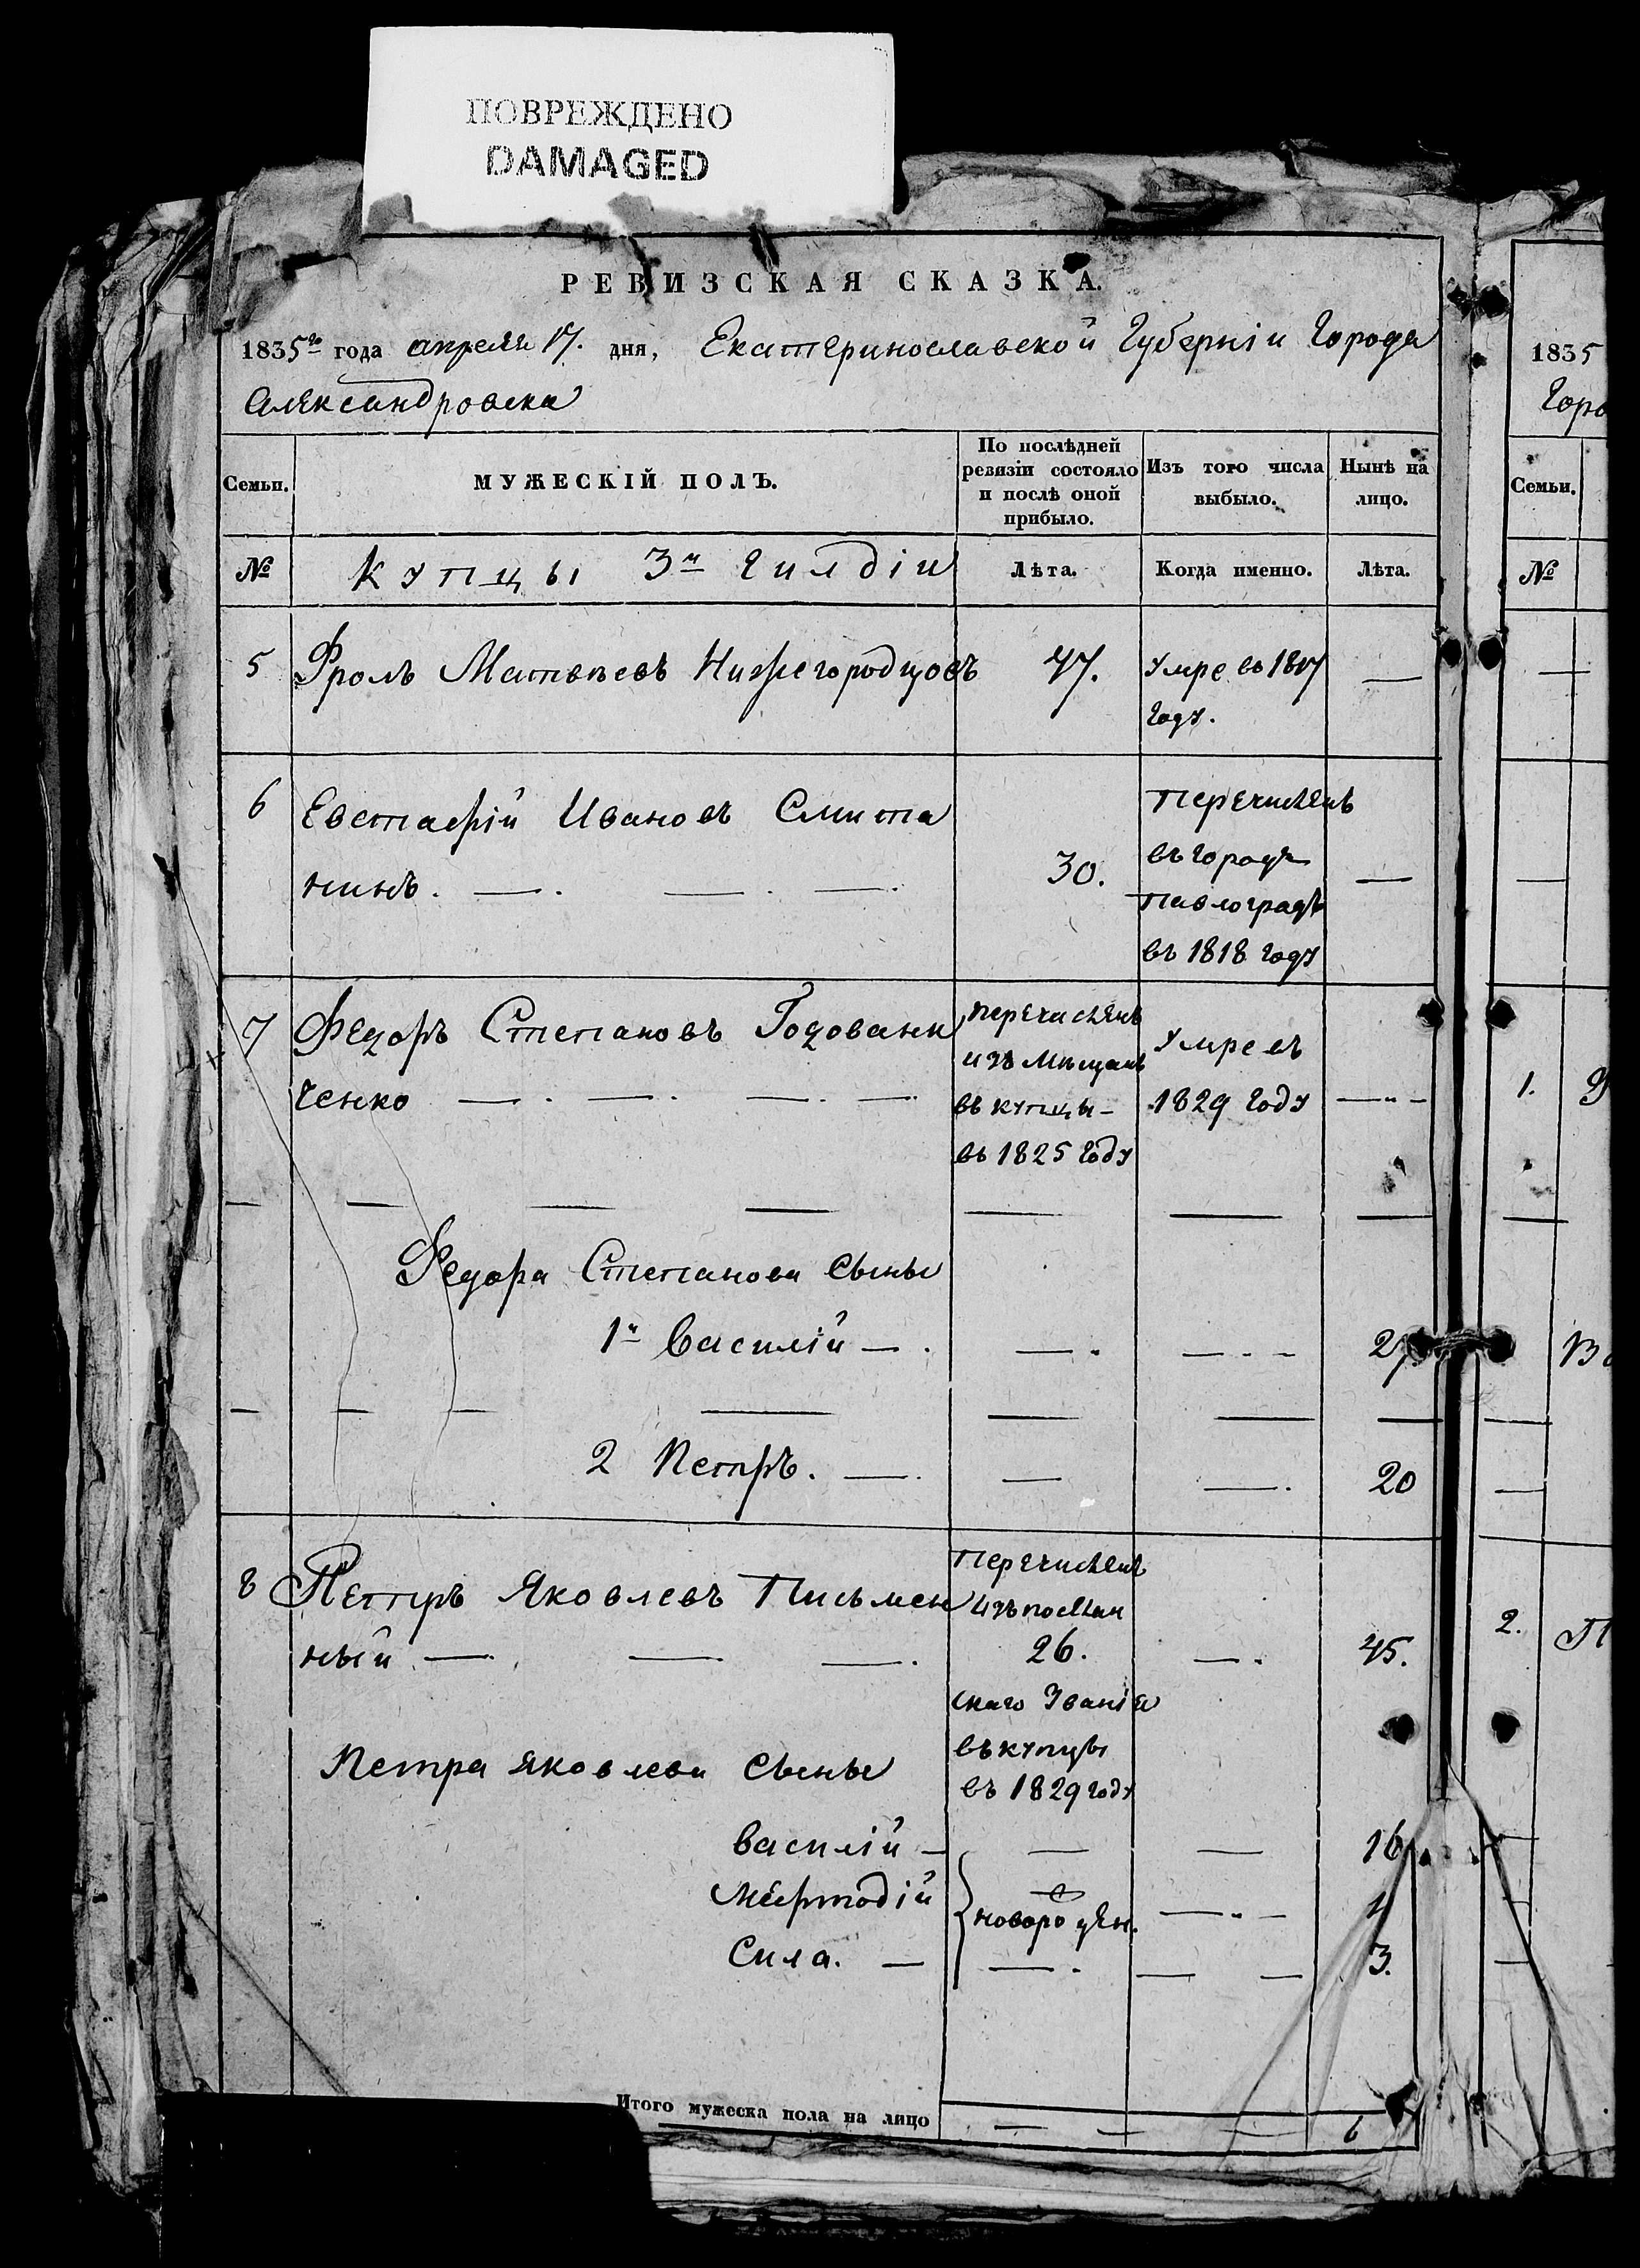 ПОВРЕЖДЕНО
DAMAGED
РЕВИЗСКАЯ СКАЗКА.
1835го года апреля 17. дня, Екатеринославской Губерніи Города
Александровска
Семьи.
МУЖЕСКІЙ ПОЛЪ.
По послѣдней
ревизіи состояло
и послѣ оной
прибыло.
Изъ того числа
выбыло.
Нынѣ на
лицо.
№
Купцы 3й Гилдіи
Лѣта.
Когда именно.
Лѣта.
5 Фролъ Матвѣевъ Нижегородцовъ 47. Умре въ 1817 —
году.
6 Евстафій Ивановъ Смита
нинъ. —. —. —. 30. —
Перечисленъ
въ городъ
Павлоградъ
въ 1818 году
7 Федоръ Степановъ Годованн
ченко — . — . — . —
перечисленъ
изъ мѣщанъ
въ купцы —
въ 1825 году
Умре въ
1829 году
Федора Степанова сыны
1й Василій — . — . — . - 27.
2 Петръ. — . — — . 20
8 Петръ Яковлевъ Письмен
ный — — — . 26. — . 45.
Перечисленъ
изъ
скаго Званія
въ купцы
въ 1829 году
Петра Яковлева сыны
Василій — — — 16
Мефтодій новорожден. — . - 4
Сила. — — . — — 3.
Итого мужеска пола на лицо — — — 6
1835
Горо
Семьи.
№
1.
2.